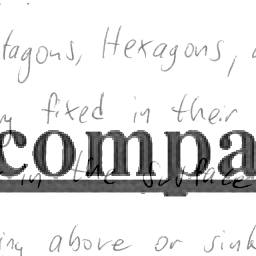 tagons, Hexagons,
fixed in their
compa
in the surface
above or sink